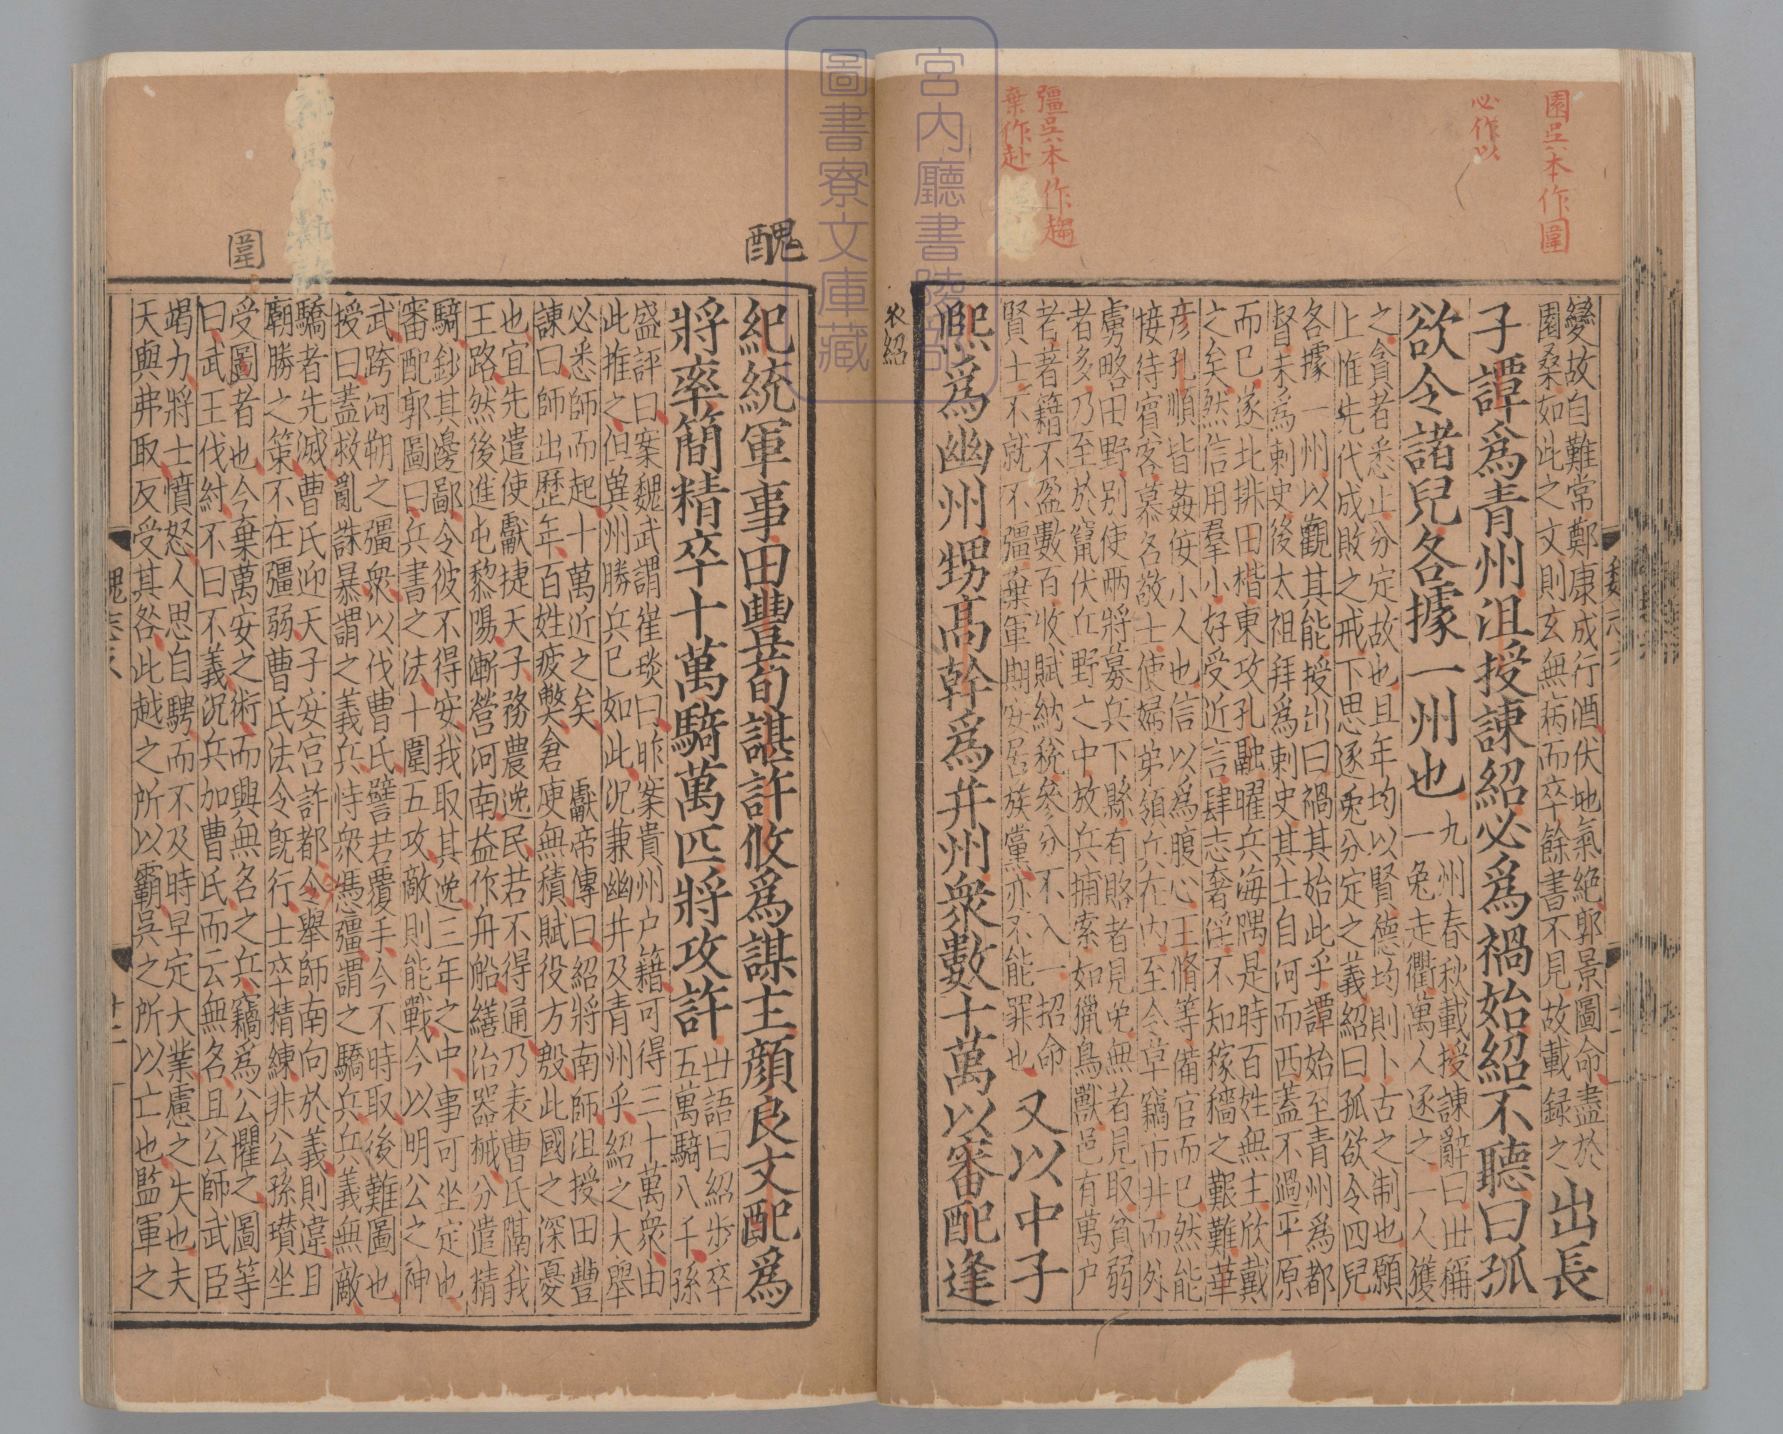 園吳本作圍
必作以
彊吳本作趨
棄作赴
變故自難常鄭康成行酒伏地氣絶郭景圖命盡於
園桑如此之文則玄無病而卒餘書不見故載録之
出長
子譚爲青州沮授諫紹必爲禍始紹不聽曰孤
欲令諸兒各據一州也
九州春秋載授諫辭曰世稱
一兔走衢萬人逐之一人獲
之貪者悉止分定故也且年均以賢德均則卜古之制也願
上惟先代成敗之戒下思逐兔分定之義紹曰孤欲令四兒
各據一州以觀其能授出曰禍其始此乎譚始至青州爲都
督未爲刺史後太祖拜爲刺史其土自河而西蓋不過平原
而已遂北排田楷東攻孔融曜兵海隅是時百姓無主欣戴
之矣然信用羣小好受近言肆志奢淫不知稼穡之艱難華
彦孔順皆姦佞小人也信以爲腹心王脩等備官而已然能
接待賓客慕名敬士使婦弟領兵在内至令草竊市井而外
虜略田野别使兩將募兵下縣有賂者見免無者見取貧弱
者多乃至於竄伏丘野之中放兵捕索如獵鳥獸邑有萬户
者著籍不盈數百收賦納稅參分不入一招命
賢士不就不彊棄軍期安居族黨亦不能罪也
又以中子
熙爲幽州甥高幹爲并州衆數十萬以審配逢
衣紹
醜
圍
紀統軍事田豐荀諶許攸爲謀主顔良文配爲
將率簡精卒十萬騎萬匹將攻許
世語曰紹步卒
五萬騎八千孫
盛評曰案魏武謂崔琰曰昨案貴州户籍可得三十萬衆由
此推之但兾州勝兵已如此况兼幽并及青州乎紹之大舉
必悉師而起十萬近之矣
獻帝傳曰紹將南師沮授田豐
諫曰師出歷年百姓疲獘倉庾無積賦役方殷此國之深憂
也宜先遣使獻捷天子務農逸民若不得通乃表曹氏隔我
王路然後進屯黎陽漸營河南益作舟船繕治器械分遣精
騎鈔其邊鄙令彼不得安我取其逸三年之中事可坐定也
審配郭圖曰兵書之法十圍五攻敵則能戰今以明公之神
武跨河朔之彊衆以伐曹氏譬若覆手今不時取後難圖也
授曰蓋救亂誅暴謂之義兵恃衆憑彊謂之驕兵兵義無敵
驕者先滅曹氏迎天子安宫許都今舉師南向於義則違且
廟勝之策不在彊弱曹氏法令旣行士卒精練非公孫瓚坐
受圖者也今棄萬安之術而興無名之兵竊爲公懼之圖等
曰武王伐紂不曰不義況兵加曹氏而云無名且公師武臣
竭力將士憤怒人思自騁而不及時早定大業慮之失也夫
天與弗取反受其咎此越之所以霸吳之所以亡也監軍之
魏志六
十二
宮内廳書陵部
圖書寮文庫藏